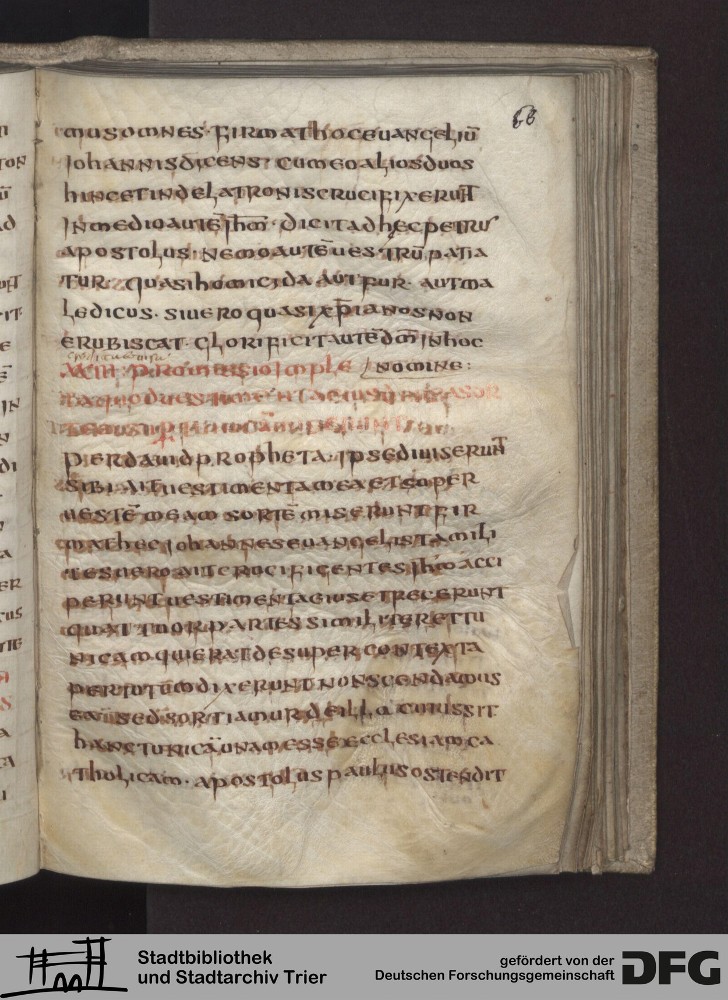 68
musomnes· firmathoceuangeliū
Iohannisdicens· cumeoaliosduos
hincetindelatroniscrucifixerunt
Inmedioautē ihm̄· dicitadhecpetrus
apostolus· nemoautē ues·trū patia
tur· quasihomicida aut fur· autma
ledicus· siueroquasi xp̄ianosnon
erubiscat· glorificitautē dm̄ Inhoc
XXIII· promissioimple /nomine:
perdauidpropheta· ipsediuiserunt
sibi· ait uestimentameaetsuper
uestē meam sortē miseruntfir
mathecIohanneseuangelistamili
tesueroaitcrucificentesihm̄ acci
peruntuestimentaeiusetfecerunt
quattuorpartessimiliterettu
nicamquieratdesupercontexta
pertotumdixeruntnonscendamus
eāsedsortiamurdeillacuiussit
hanctunicāunamesseecclesiamca
tholicam· apostoluspaulusostendit
Stadtbibliothek
und Stadtarchiv Trier
gefördert von der
Deutschen Forschungsgemeinschaft
DFG